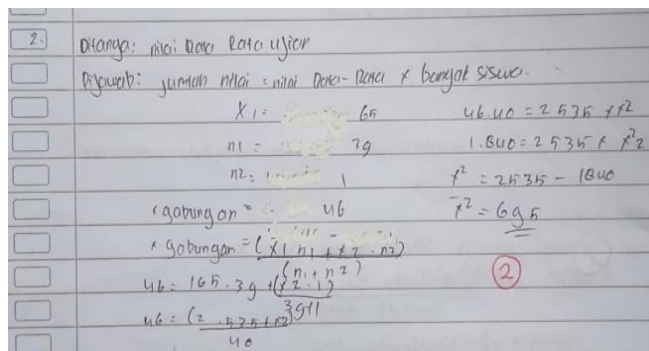 2.
Ditanya: nilai Rata Rata Ujian
Dijawab: jumlah nilai = nilai Rata-Rata x banyak siswa.
x1 = 65
n1 = 39
n2 = 1
x gabungan = 46
x gabungan = (x1 . n1 + x2 . n2)
(n1 + n2)
46 = (65 . 39 + (x2 . 1)
39+1
46 = (2 . 535 + x2)
40
46.40 = 2535 + x2
1.840 = 2535 + x2
x2 = 2535 - 1840
x2 = 695
2